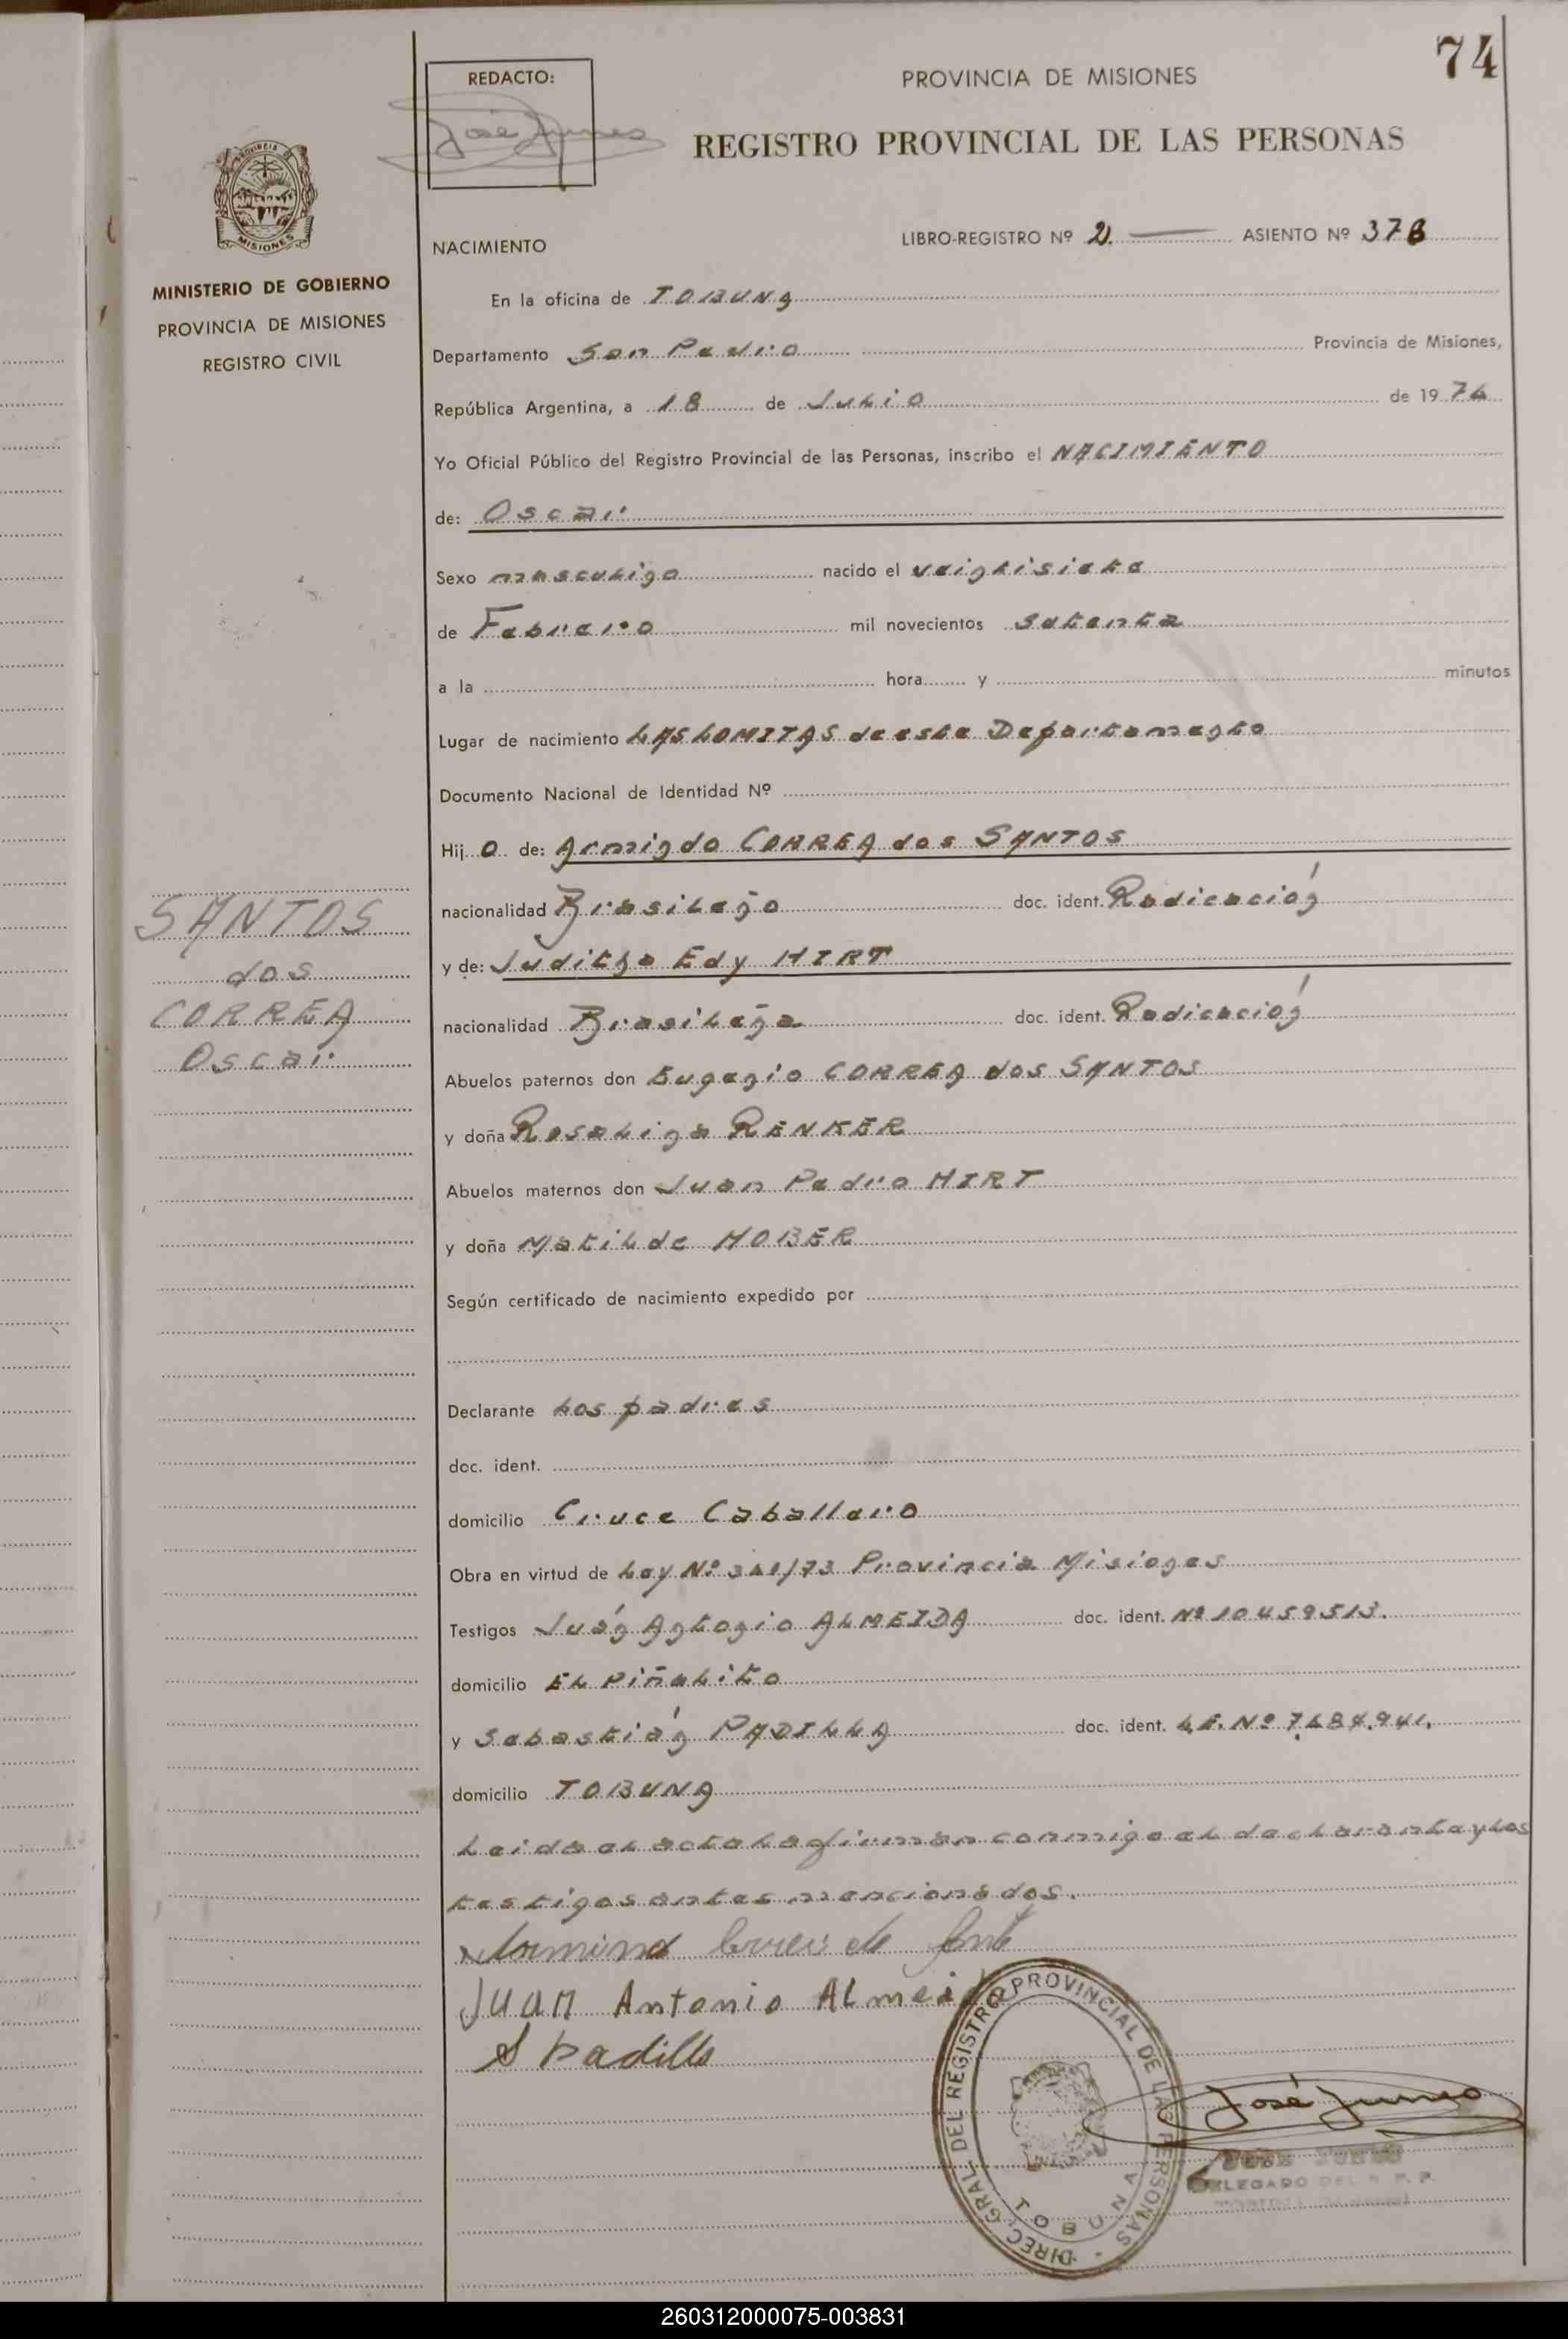 74
REDACTO:
PROVINCIA DE MISIONES
REGISTRO PROVINCIAL DE LAS PERSONAS
PROVINCIA
MISIONES
MINISTERIO DE GOBIERNO
PROVINCIA DE MISIONES
REGISTRO CIVIL
NACIMIENTO
LIBRO-REGISTRO Nº 2. ASIENTO Nº 378
En la oficina de TOBUNA
Departamento San Pedro Provincia de Misiones,
República Argentina, a 18 de Julio de 1974
Yo Oficial Público del Registro Provincial de las Personas, inscribo el NACIMIENTO
de: Oscar
Sexo masculino nacido el veintisiete
de Febrero mil novecientos setenta
a la hora y minutos
Lugar de nacimiento LAS LOMITAS de este Departamento
Documento Nacional de Identidad Nº
Hij o de: Armindo CORREA dos SANTOS
nacionalidad Brasileño doc. ident. Radicación
y de: Juditha Edy HIRT
nacionalidad Brasileña doc. ident. Radicación
SANTOS
dos
CORREA
Oscar
Abuelos paternos don Eugenio CORREA dos SANTOS
y doña Rosalina RENKER
Abuelos maternos don Juan Pedro HIRT
y doña Matilde HOBER
Según certificado de nacimiento expedido por
Declarante Los padres
doc. ident.
domicilio Cruce Caballero
Obra en virtud de Ley Nº Provincia Misiones
Testigos Juán Antonio ALMEIDA doc. ident. Nº 10459513.
domicilio EL Piñalito
y Sebastián PADILLA doc. ident. L.E. Nº
domicilio TOBUNA
Leida el acta la firman conmigo el declarante y los
testigos antes mencionados.
JUAN Antonio ALmeida
S Padilla
DIREC. GRAL. DEL REGISTRO PROVINCIAL DE LAS PERSONAS
TOBUNA
José
DELEGADO DEL R. P. P.
260312000075-003831